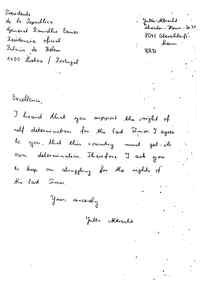 Presidente
de la Republica
General Ramalho Eanes
Residencia oficial
Palacio de Belem
1400 Lisboa / Portugal
Jutta Albrecht
8581
BRD
Excellence,
I heard that you support the right of
self determination for the East Timor. I agree
to you, that this country must get its
own determination. Therefore I ask you
to keep on struggling for the rights of
the East Timor.
Yours sincerely
Jutta Albrecht